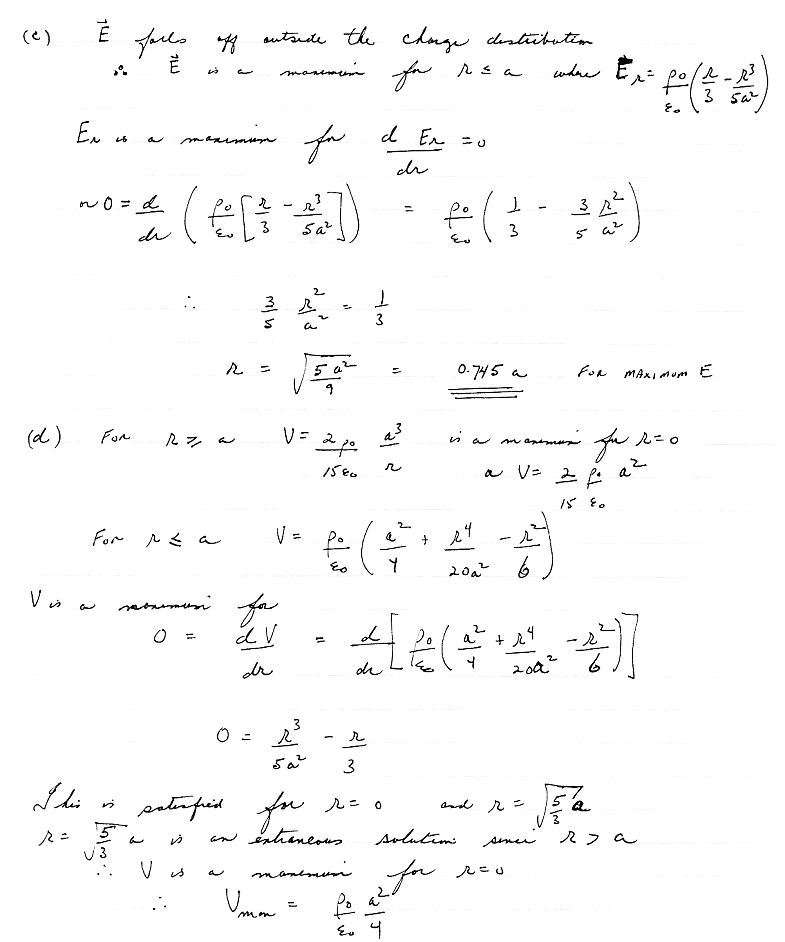 (c) E⃗ falls off outside the charge distribution
∴ E⃗ is a maximum for r ≤ a where E_r = ρ₀/ε₀ (r/3 - r³/5a²)
E_r is a maximum for d E_r/dr = 0
or 0 = d/dr (ρ₀/ε₀ [r/3 - r³/5a²]) = ρ₀/ε₀ (1/3 - 3/5 r²/a²)
∴ 3/5 r²/a² = 1/3
r = √(5a²/9) = 0.745 a FOR MAXIMUM E
(d) For r ≥ a V = 2ρ₀/15ε₀ a³/r is a maximum for r = 0
a V = 2/15 ρ₀/ε₀ a²
For r ≤ a V = ρ₀/ε₀ (a²/4 + r⁴/20a² - r²/6)
V is a maximum for
0 = dV/dr = d/dr [ρ₀/ε₀ (a²/4 + r⁴/20a² - r²/6)]
0 = r³/5a² - r/3
This is satisfied for r = 0 and r = √(5/3) a
r = √(5/3) a is an extraneous solution since r > a
∴ V is a maximum for r = 0
∴ V_max = ρ₀/ε₀ a²/4